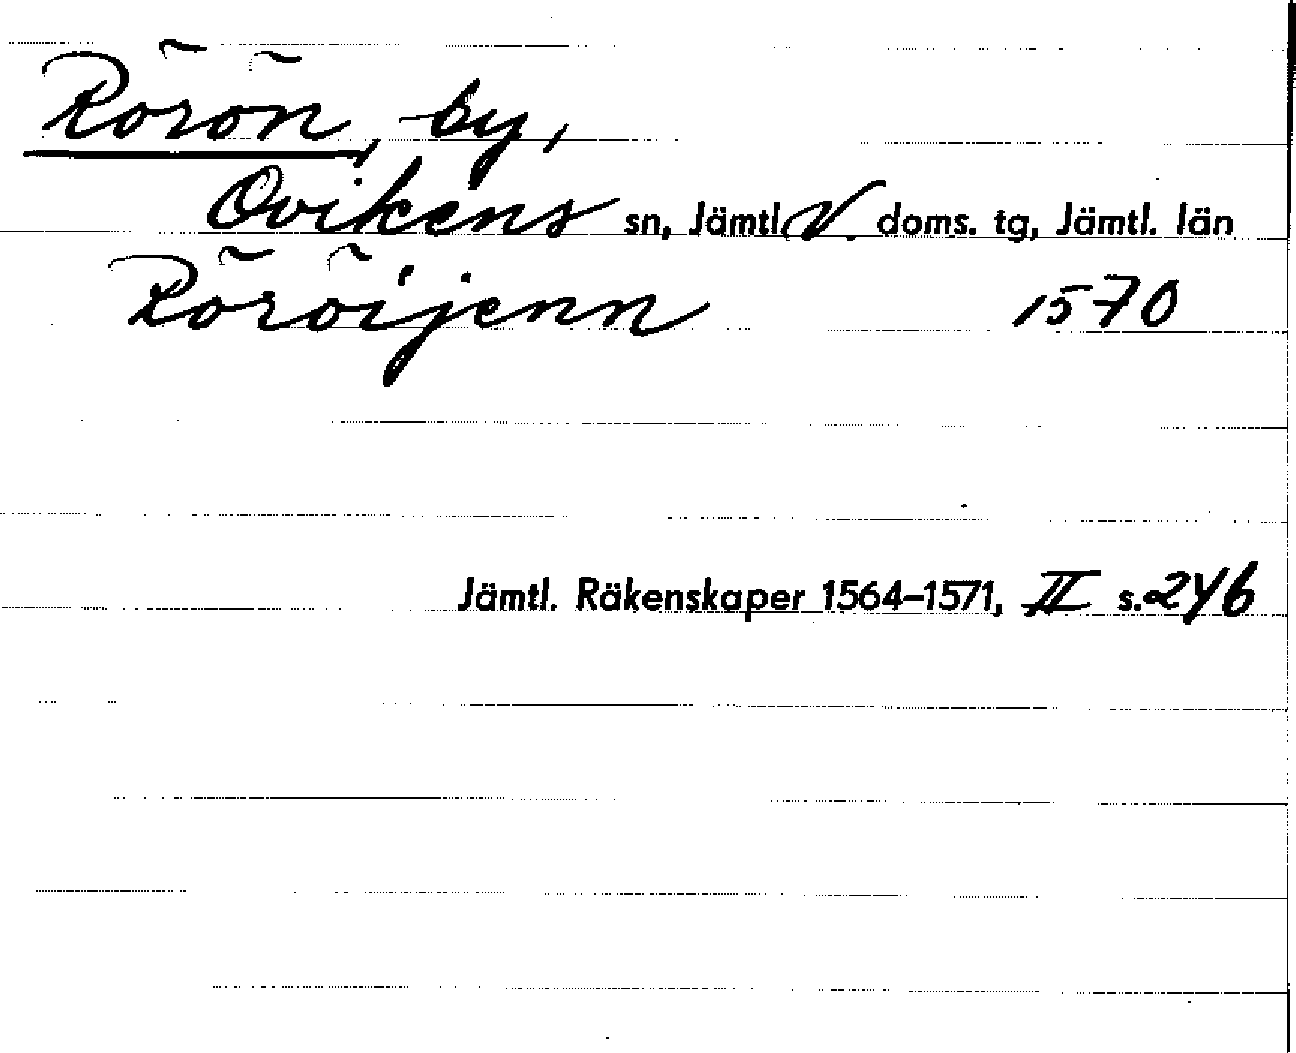 Rörön, by,
Ovikens sn, Jämtl. V. doms. tg, Jämtl. län
Röröijenn 1570
Jämtl. Räkenskaper 1564–1571, II s. 246